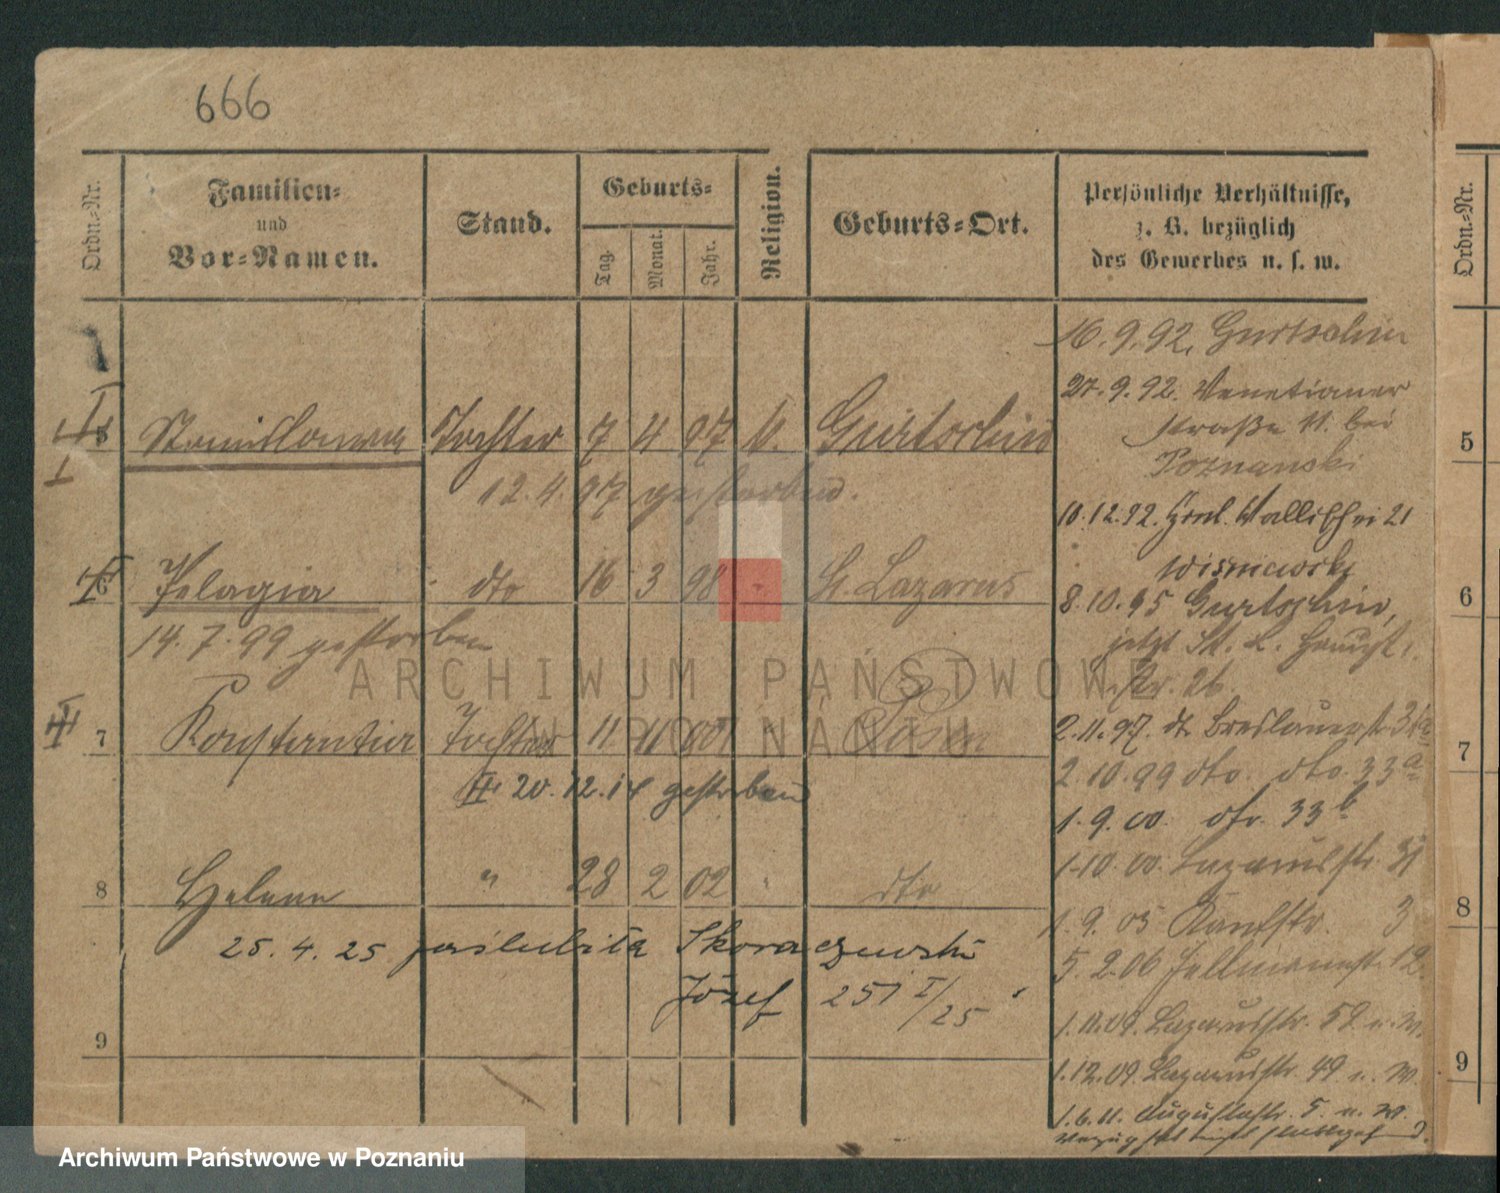 666
Ordn.-Nr.
Familien-
und
Vor-Namen.
Stand.
Geburts-
Tag.
Monat.
Jahr.
Religion.
Geburts-Ort.
Persönliche Verhältnisse,
z. B. bezüglich
des Gewerbes u. s. w.
Ordn.-Nr.
16.9.92. Gurtschin
27.9.92. Venetianer
straße 11. bei
Poznanski
Stanislawa Tochter 7 4 97 k. Gurtschin
12.4.97 gestorben.
10.12.92. Wallischei 21
Wisniewski
6 Pelagia dto 16 3 98 " St. Lazarus
14.7.99 gestorben
8.10.95 Gurtschin,
jetzt St. L. Haupt
str. 26.
7 Konstantia Tochter 11 11 00 " Posen
20.12.14 gestorben
2.11.97. dt. Breslauerst.
2.10.99 dto. dto. 33a
1.9.00. dto. 33b
1.10.00. Lazarusstr. 31
8 Helene " 28 2 02 " dto
25.4.25 poślubiła Skoraczewski
Józef 251 I/25
1.9.05 Kanlstr. 3
5.2.06 12.
1.11.09. Lazarusstr. 52 u. W.
1.12.09. Lazarusstr. 49 u. W.
1.6.11. Augustastr. 5. u. W.
9
5
6
7
8
9
ARCHIWUM PAŃSTWOWE
W POZNANIU
Archiwum Państwowe w Poznaniu